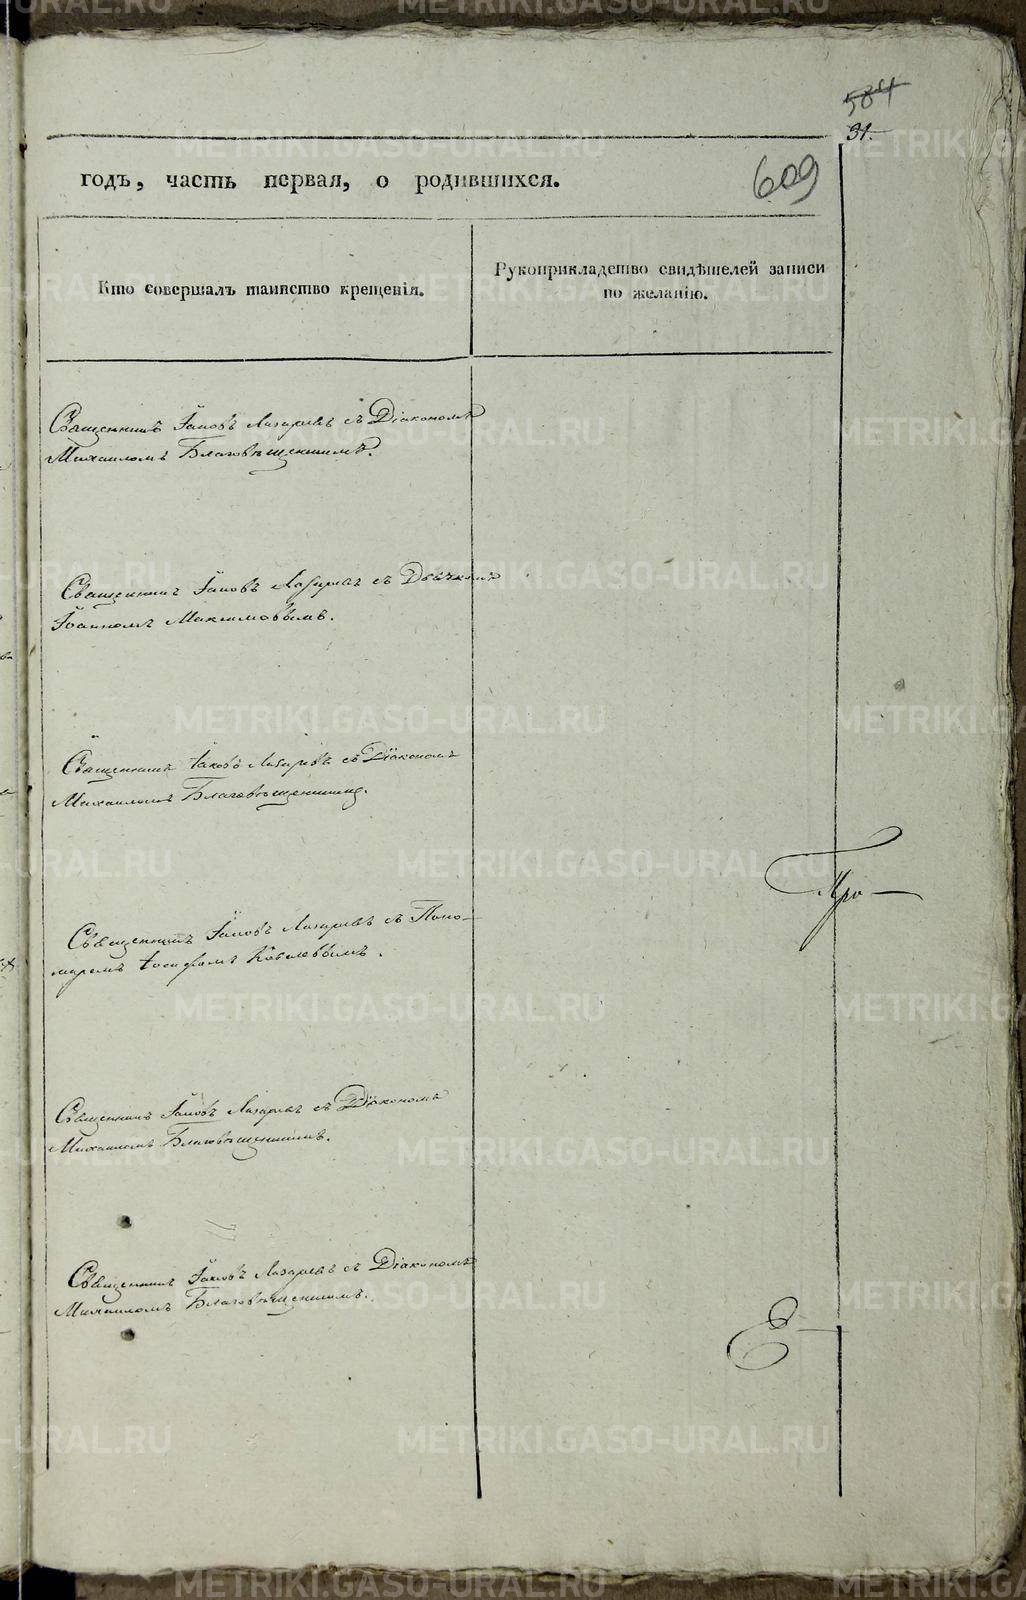 584
31.
609
годъ, часть первая, о родившихся.
Кто совершалъ таинство крещенія.
Рукоприкладство свидѣтелей записи
по желанію.
Священникъ Іаковъ Лазаревъ съ Діакономъ
Михаиломъ Благовѣщенскимъ.
Священникъ Іаковъ Лазаревъ съ Дьячкомъ
Іоанномъ Максимовымъ.
Священникъ Іаковъ Лазаревъ съ Діакономъ
Михаиломъ Благовѣщенскимъ.
Священникъ Іаковъ Лазаревъ съ Поно-
маремъ Іосифомъ
Священникъ Іаковъ Лазаревъ съ Діакономъ
Михаиломъ Благовѣщенскимъ.
Священникъ Іаковъ Лазаревъ съ Діакономъ
Михаиломъ Благовѣщенскимъ.
METRIKI.GASO-URAL.RU